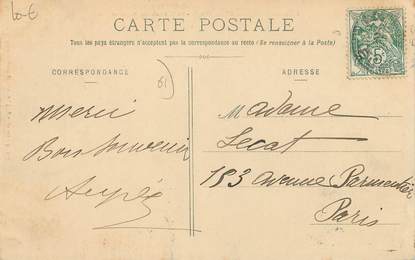 60-€
CARTE POSTALE
Tous les pays étrangers n'acceptent pas la correspondance au recto (Se renseigner à la Poste)
CORRESPONDANCE
ADRESSE
61
Merci
Bon Souvenir
Madame
Lecat
183 avenue Parmentier
Paris
5